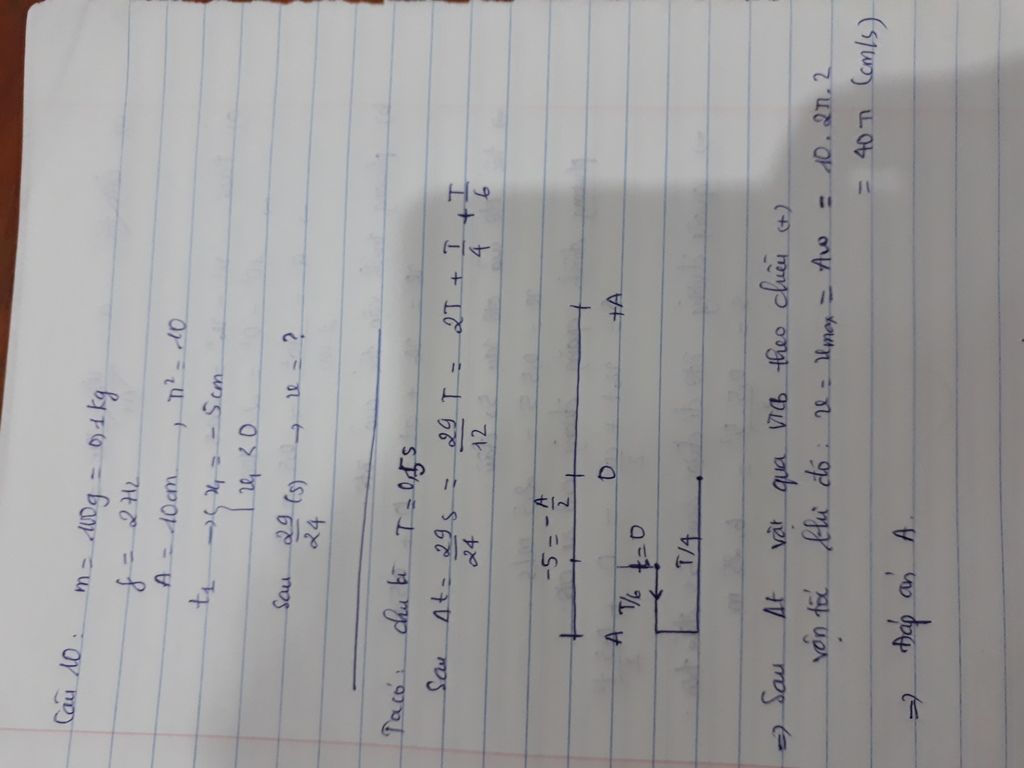 Câu 10: m = 100g = 0,1kg
f = 2Hz
A = 10cm, π² = 10
t₁ → { x₁ = -5cm
v₁ < 0
Sau 29/24 (s) → v = ?
Ta có: chu kì T = 0,5s
Sau Δt = 29/24 s = 29/12 T = 2T + T/4 + T/6
-5 = -A/2
A O +A
T/6 t=0
T/4
=> Sau Δt vật qua VTCB theo chiều (+)
vận tốc khi đó: v = vmax = Aω = 10.2π.2
= 40π (cm/s)
=> Đáp án A.